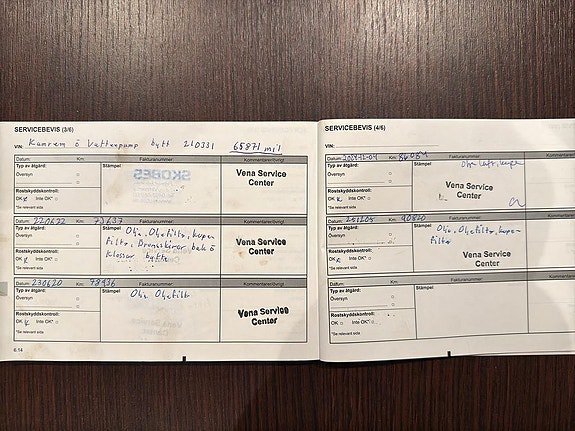 SERVICEBEVIS (3/6)
VIN: Kamrem ö Vattenpump bytt 210331 65871 mil
Datum: Km: Fakturanummer: Kommentarer/övrigt
Typ av åtgärd: Stämpel
Översyn
Vena Service
Center
Rostskyddskontroll:
OK Inte OK*
*Se relevant sida
Datum: 220622 Km: 73637 Fakturanummer: Kommentarer/övrigt
Typ av åtgärd: Stämpel Olja. Oljefiltr. kupe
Översyn filtr. Bromsskivor bak ö
klossar bytta
Vena Service
Center
Rostskyddskontroll:
OK Inte OK*
*Se relevant sida
Datum: 230620 Km: Fakturanummer: Kommentarer/övrigt
Typ av åtgärd: Stämpel Olja Oljefiltr
Översyn
Vena Service
Center
Rostskyddskontroll:
OK Inte OK*
*Se relevant sida
6.14
SERVICEBEVIS (4/6)
VIN:
Datum: Km: Fakturanummer: Kommentarer/övrigt
Typ av åtgärd: Stämpel
Översyn
Vena Service
Center
Rostskyddskontroll:
OK Inte OK*
*Se relevant sida
Datum: 251205 Km: 90820 Fakturanummer: Kommentarer/övrigt
Typ av åtgärd: Stämpel Olja. Oljefiltr, kupe-
Översyn filtr
Vena Service
Center
Rostskyddskontroll:
OK Inte OK*
*Se relevant sida
Datum: Km: Fakturanummer: Kommentarer/övrigt
Typ av åtgärd: Stämpel
Översyn
Rostskyddskontroll:
OK Inte OK*
*Se relevant sida